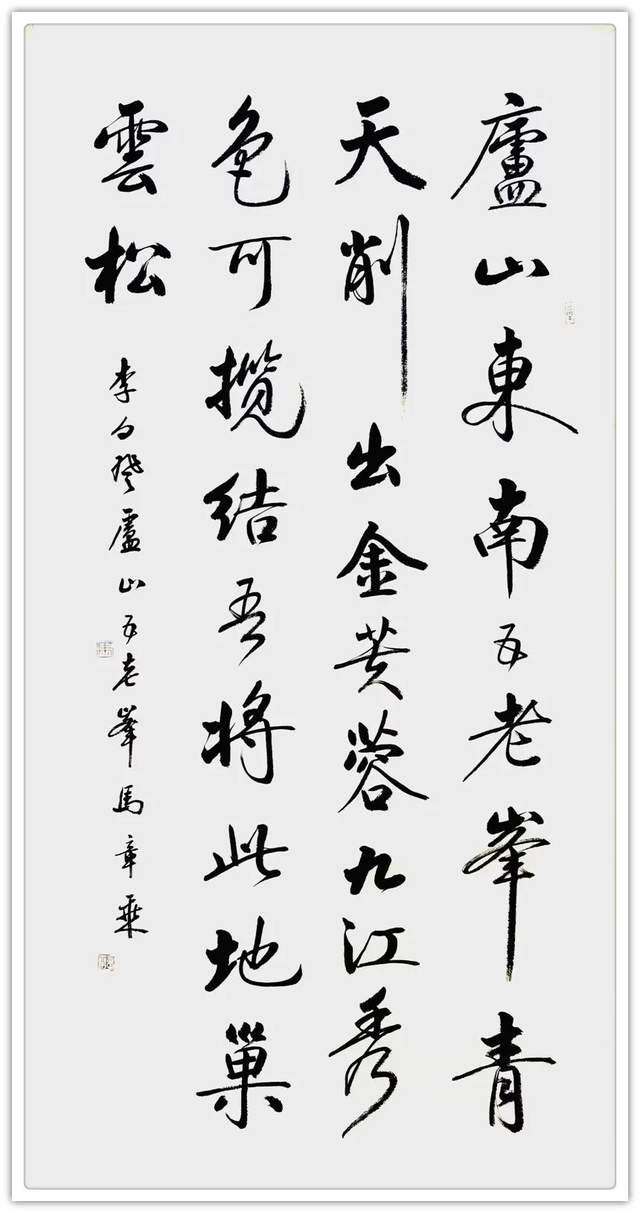 廬山東南五老峯青
天削出金芙蓉九江秀
色可攬結吾將此地巢
雲松
李白登廬山五老峯馬章乘